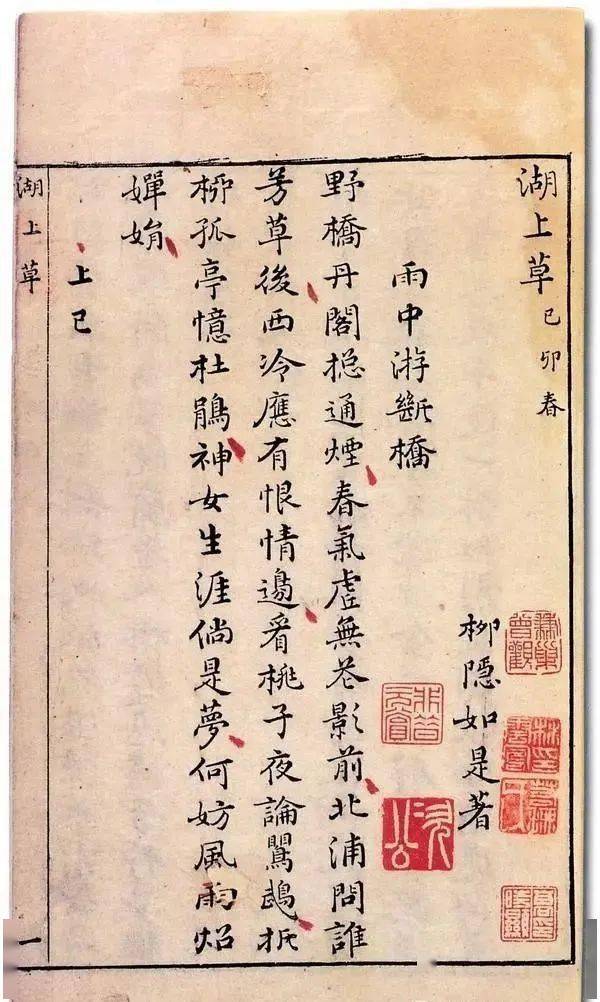 湖上草 己卯春
柳隱如是著
雨中游斷橋
野橋丹閣捴通煙春氣虛無花影前北浦問誰
芳草後西冷應有恨情邊看桃子夜論鸚鵡折
柳孤亭憶杜鵑神女生涯倘是夢何妨風雨炤
嬋娟
上巳
湖上草
一